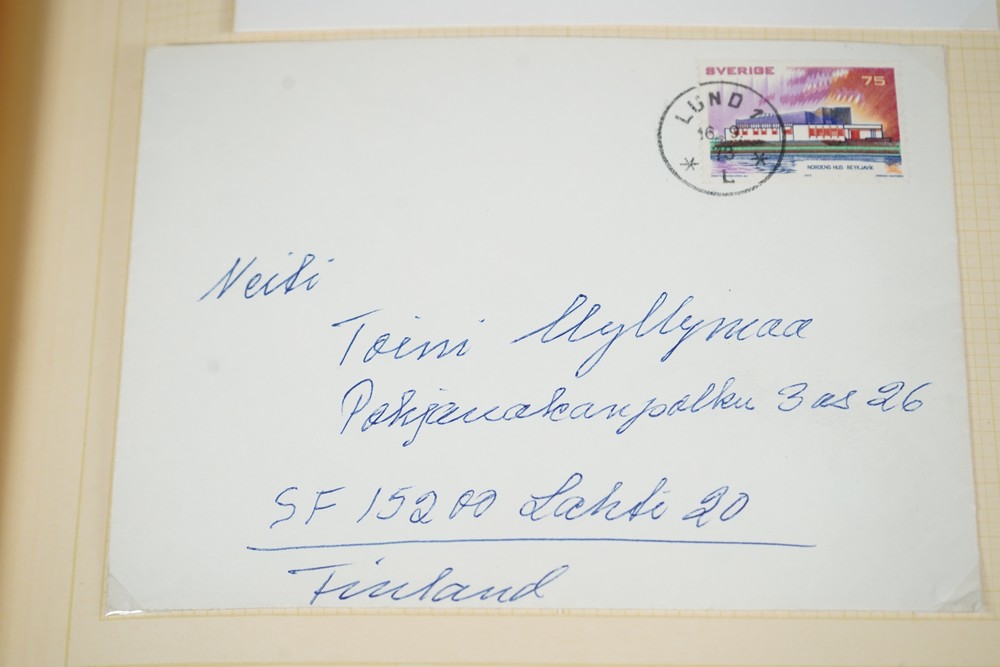 SVERIGE 75
LUND 1
16. 9.
73
L
NORDENS HUS REYKJAVIK
Neiti
Toini Myllymaa
Pohjanakanpolku 3 as 26
SF 15200 Lahti 20
Finland